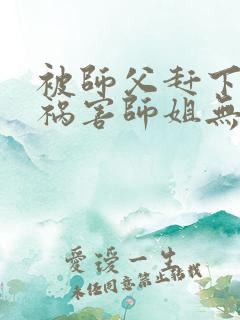 被師父赶下
祸害師姐無
愛谖一生
未经同意禁止转载